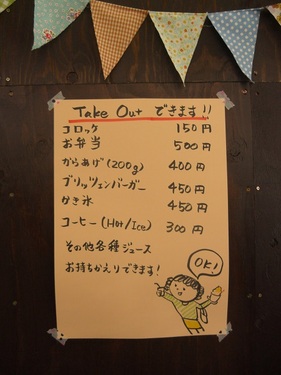 Take Out できます!!
コロッケ 150円
お弁当 500円
からあげ(200g) 400円
ブリッツェンバーガー 450円
かき氷 450円
コーヒー(Hot/Ice) 300円
その他各種ジュース
お持ちかえりできます!
OK!